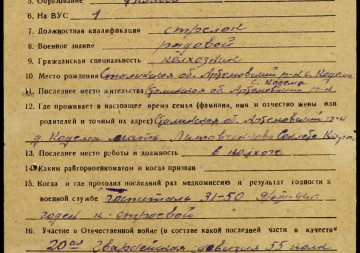 5. Образование
6. На ВУС 1
7. Должностная квалификация стрелок
8. Военное звание рядовой
9. Гражданская специальность колхозник
10. Место рождения Сталинская об. Артемовский р-н с. Кодема
11. Последнее место жительства Сталинская об. Артемовский р-н с. Кодема
12. Где проживает в настоящее время семья (фамилия, имя и отчество жены или
родителей и точный их адрес) Сталинская об. Артемовский р-н
д Кодема мать Литовченкова
13. Последнее место работы и должность в колхозе
14. Каким райгорвоенкоматом и когда призван
15. Когда и где проходил последний раз медкомиссию и результат годности к
военной службе госпиталь 31-50
годен к строевой
16. Участие в Отечественной войне (в составе какой последней части и в качестве
20ая Гвардейская дивизия 55 полк